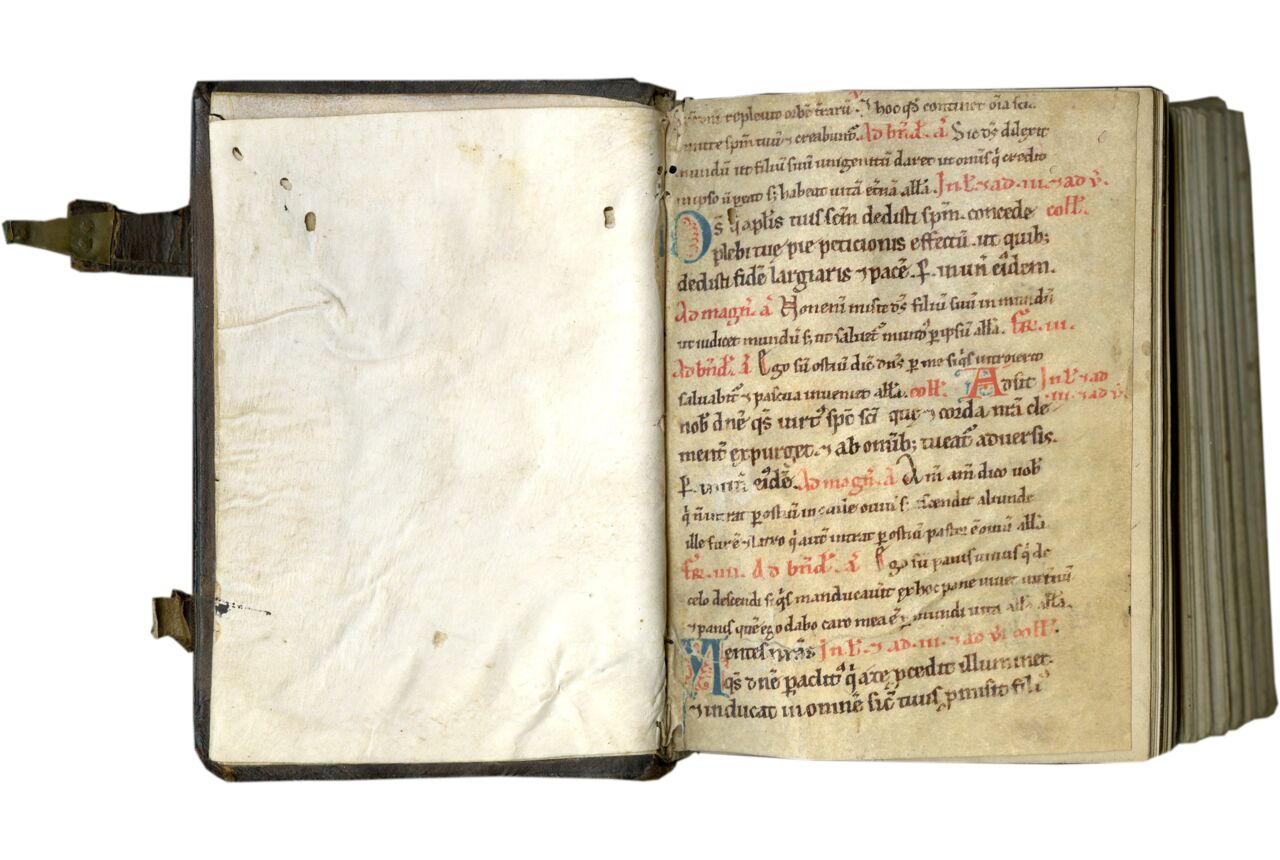 repleuit orbē trarū. hoc qd continet oīa sci..
mitte spm tuū ⁊ creabunt᷑. Ad bn̄d. a᷑ Sic ds̄ dilexit
mundū ut filiū suū unigenitū daret ut omīs q̇ credit
in ipso n̄ peat s; habeat uitā etnā alla. In ł ⁊ ad .iii. ⁊ ad v̄.
Ds̄ q̇ aplis tuis scm̄ dedisti spm̄. concede coll.
plebi tue pie peticionis effectū. ut quib;
dedisti fidē largiaris ⁊ pacē. P. in un̄ eiđem.
Ad magn̄. a᷑ Non enī misit ds̄ filiū suū in mundū
ut iudicet mundū s; ut saluet᷑ mund᷒ p ipsū alla. Fr̄. iii.
Ad bn̄d. a᷑ Ego sū ostiū dic̄ dn̄s p me siq̇s introierit
saluabit᷑ ⁊ pascua inueniet alla. coll. Adsit In ł ⁊ ad
nob̄ dn̄e qs̄ uirt᷒ spc̄ sc̄i que ⁊ corda nrā cle .iii. ⁊ ad v̄.
ment̄ expurget. ⁊ ab omīb; tueat᷑ aduersis.
P. in un̄ eiđē. Ad magn̄. a᷑ Am̄ am̄ dico uob̄
q̇ n̄ intrat p ostiū in ouile ouiū s; ascendit aliunde
ille fur ē ⁊ latro q̇ autē intrat p ostiū pastor ē ouiū alla
Fr̄. iiii. Ad bn̄d. a᷑ Ego sū panis uiuus q̇ de
celo descendi siq̇s manducauit ex hoc pane uiuet in etnū
⁊ panis quē ego dabo caro mea ē p mundi uita alla alla.
Mentes nrās In ł ⁊ ad .iii. ⁊ ad v̄. coll.
qs̄ dn̄e paclit᷒ q̇ a te pcedit illuminet.
⁊ inducat in omnē sic̄ tuus pmisit fili᷒